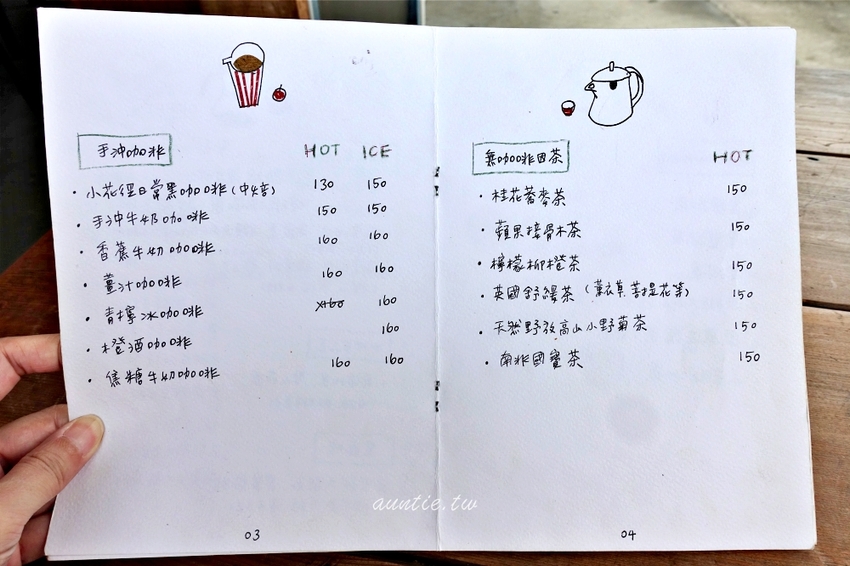 手沖咖啡 HOT ICE
・小花徑日常黑咖啡(中焙) 130 150
・手沖牛奶咖啡 150 150
・香蕉牛奶咖啡 160 160
・薑汁咖啡 160 160
・青檸冰咖啡 x160 160
・橙酒咖啡 160
・焦糖牛奶咖啡 160 160
03
無咖啡因茶 HOT
・桂花蕎麥茶 150
・蘋果接骨木茶 150
・檸檬柳橙茶 150
・英國舒緩茶(薰衣草菩提花等) 150
・天然野放高山小野菊茶 150
・南非國寶茶 150
04
auntie.tw